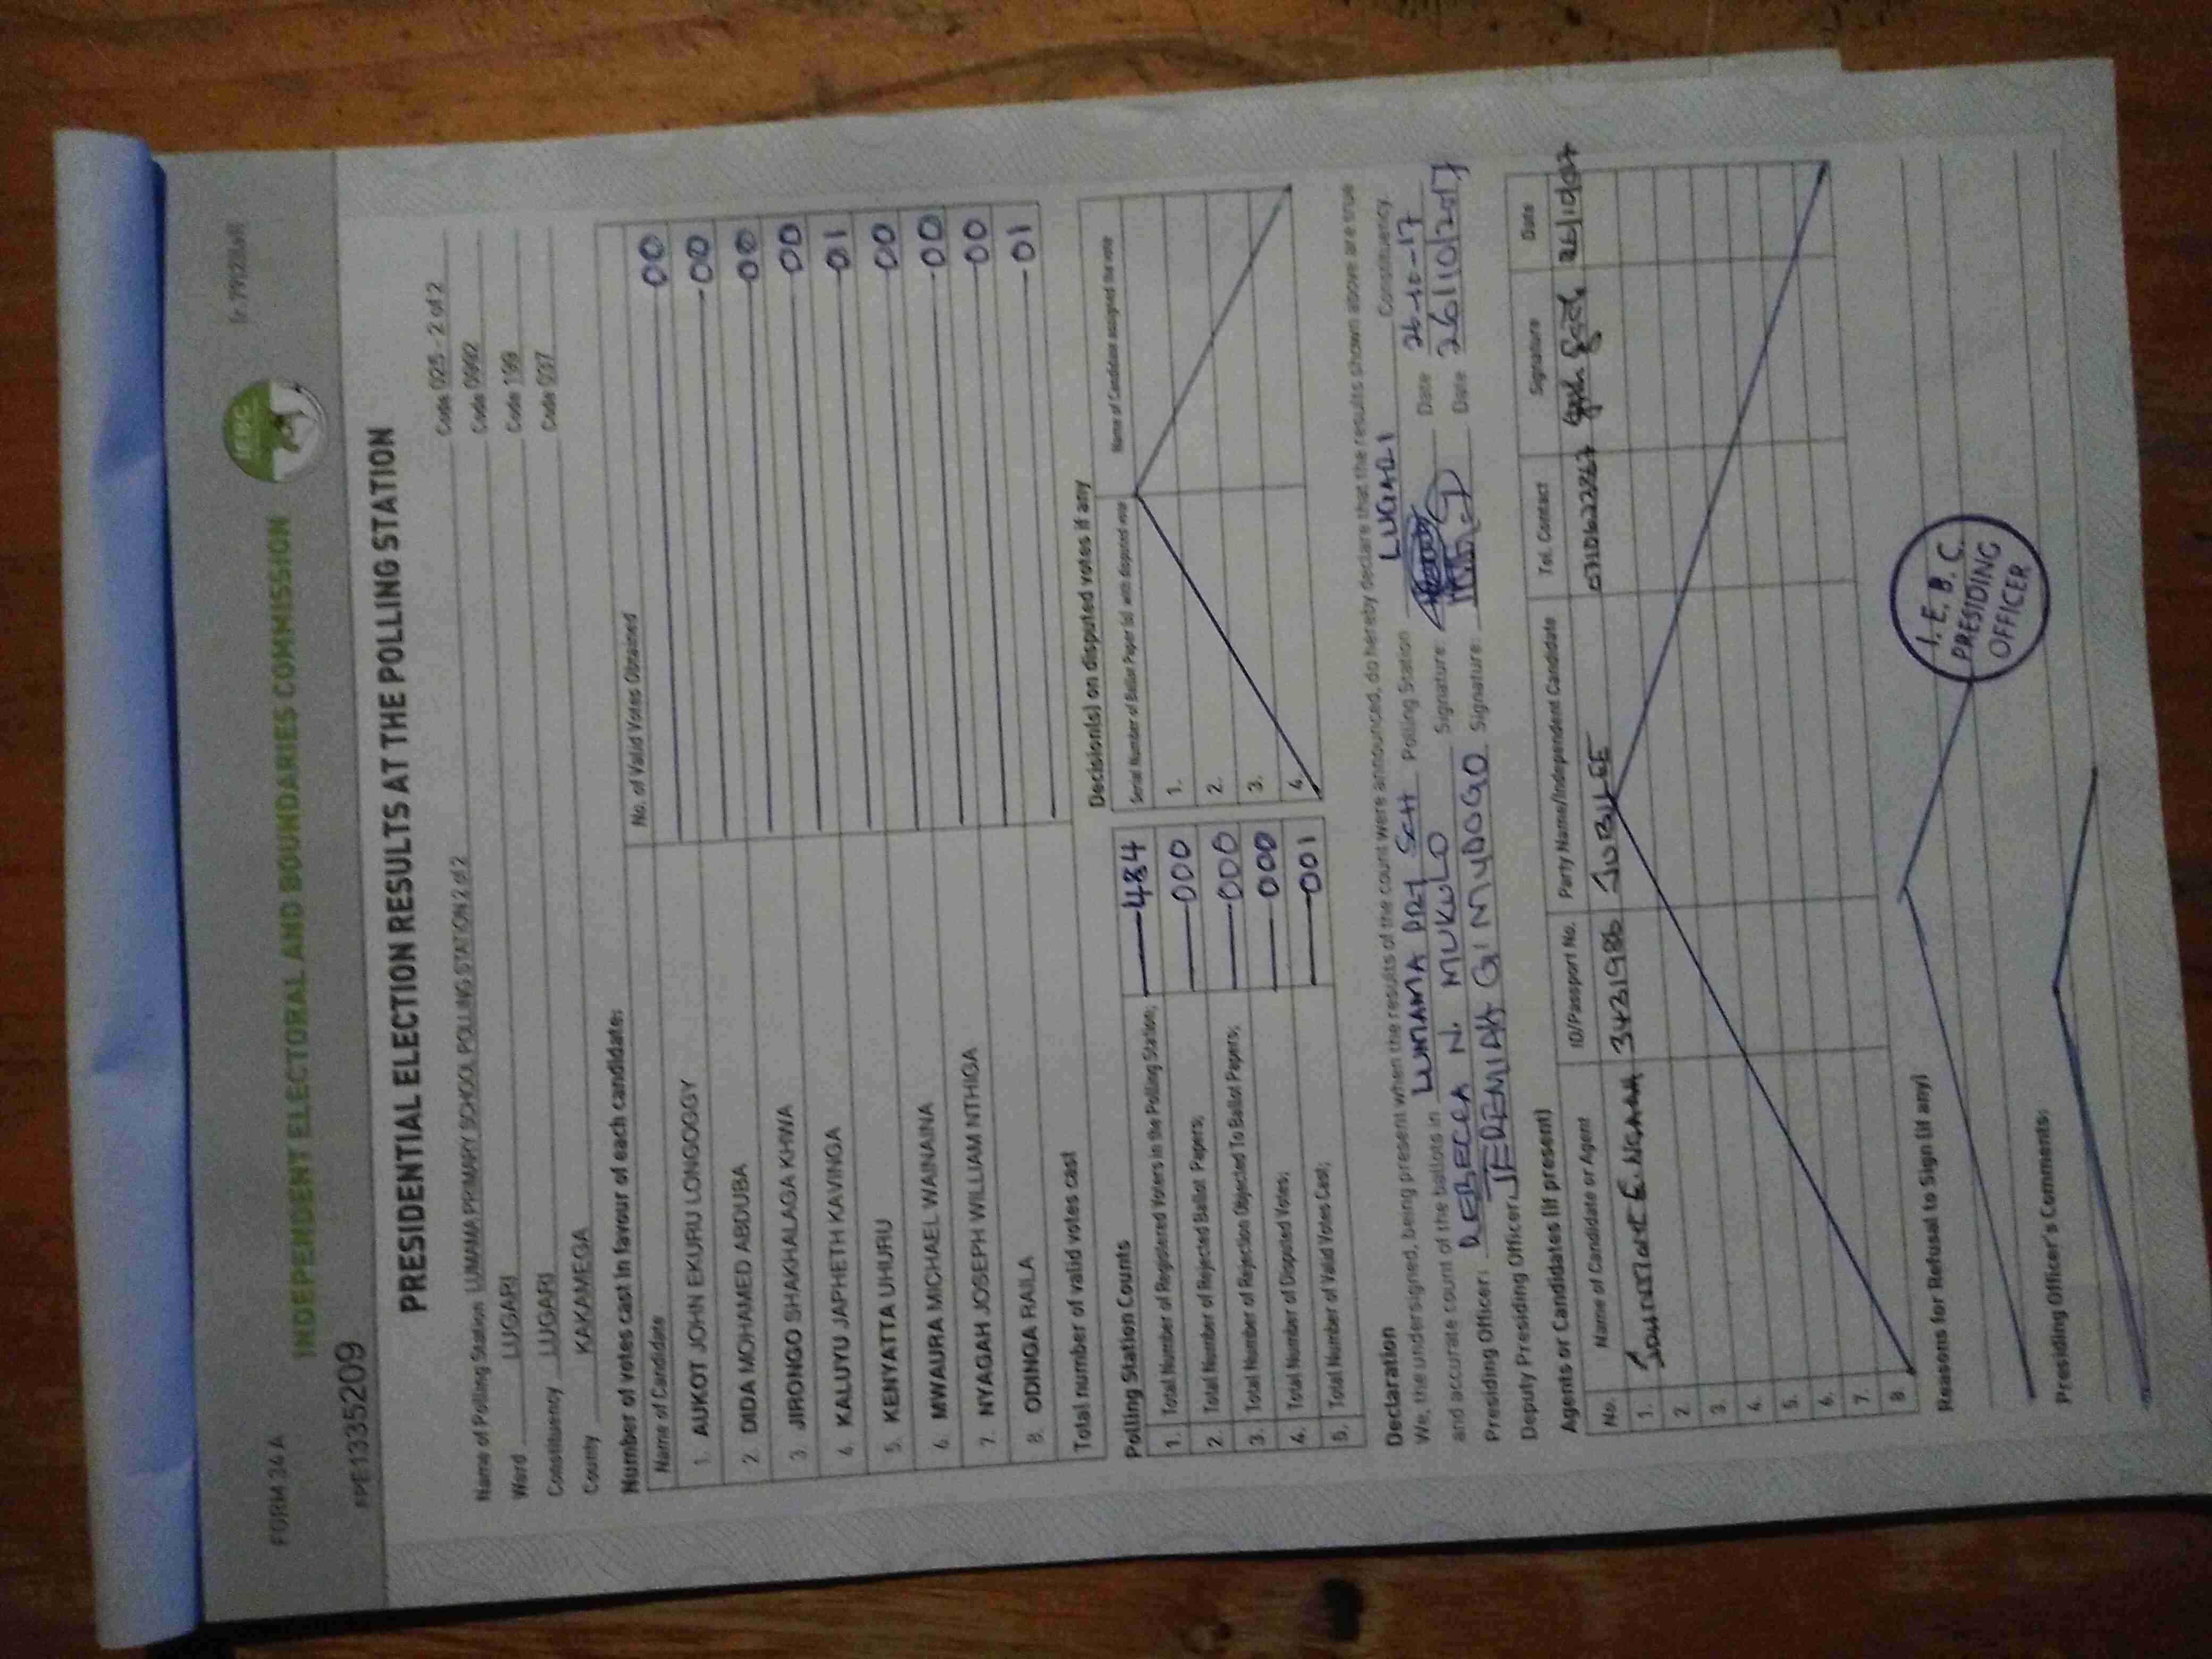 FORM 34 A
INDEPENDENT ELECTORAL AND BOUNDARIES COMMISSION
IEBC
PPE1335209
PRESIDENTIAL ELECTION RESULTS AT THE POLLING STATION
Name of Polling Station LUMAMA PRIMARY SCHOOL POLLING STATION 2 of 2 Code 025 - 2 of 2
Ward LUGARI Code 0992
Constituency LUGARI Code 199
County KAKAMEGA Code 037
Number of votes cast in favour of each candidate:
Name of Candidate No. of Valid Votes Obtained
1. AUKOT JOHN EKURU LONGOGGY 00
2. DIDA MOHAMED ABDUBA 00
3. JIRONGO SHAKHALAGA KHWA 00
4. KALUYU JAPHETH KAVINGA 00
5. KENYATTA UHURU 01
6. MWAURA MICHAEL WAINAINA 00
7. NYAGAH JOSEPH WILLIAM NTHIGA 00
8. ODINGA RAILA 00
Total number of valid votes cast 01
Polling Station Counts
1. Total Number of Registered Voters in the Polling Station; 484
2. Total Number of Rejected Ballot Papers; 000
3. Total Number of Rejection Objected To Ballot Papers; 000
4. Total Number of Disputed Votes; 000
5. Total Number of Valid Votes Cast; 001
Decision(s) on disputed votes if any
Serial Number of Ballot Paper (s) with disputed vote Name of Candidate assigned the vote
1.
2.
3.
4.
Declaration
We, the undersigned, being present when the results of the count were announced, do hereby declare that the results shown above are true
and accurate count of the ballots in LUMAMA PRY SCH Polling Station LUGARI Constituency.
Presiding Officer: REBECCA N. MUKULO Signature: Date 26-10-17
Deputy Presiding Officer: JEREMIAH GIMUDOGO Signature: Date 26/10/2017
Agents or Candidates (if present)
No. Name of Candidate or Agent ID/Passport No. Party Name/Independent Candidate Tel. Contact Signature Date
1. 34231986 JUBILEE
2.
3.
4.
5.
6.
7.
8.
Reasons for Refusal to Sign (if any)
I.E.B.C.
PRESIDING
OFFICER
Presiding Officer's Comments: